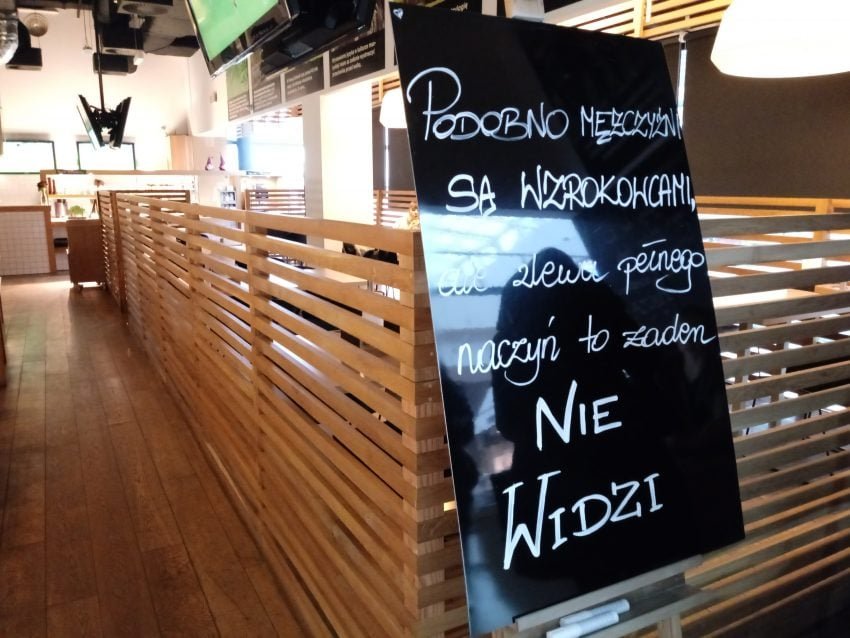 PODOBNO MĘŻCZYŹNI
SĄ WZROKOWCAMI,
ale zlewu pełnego
naczyń to żaden
NIE
WIDZI